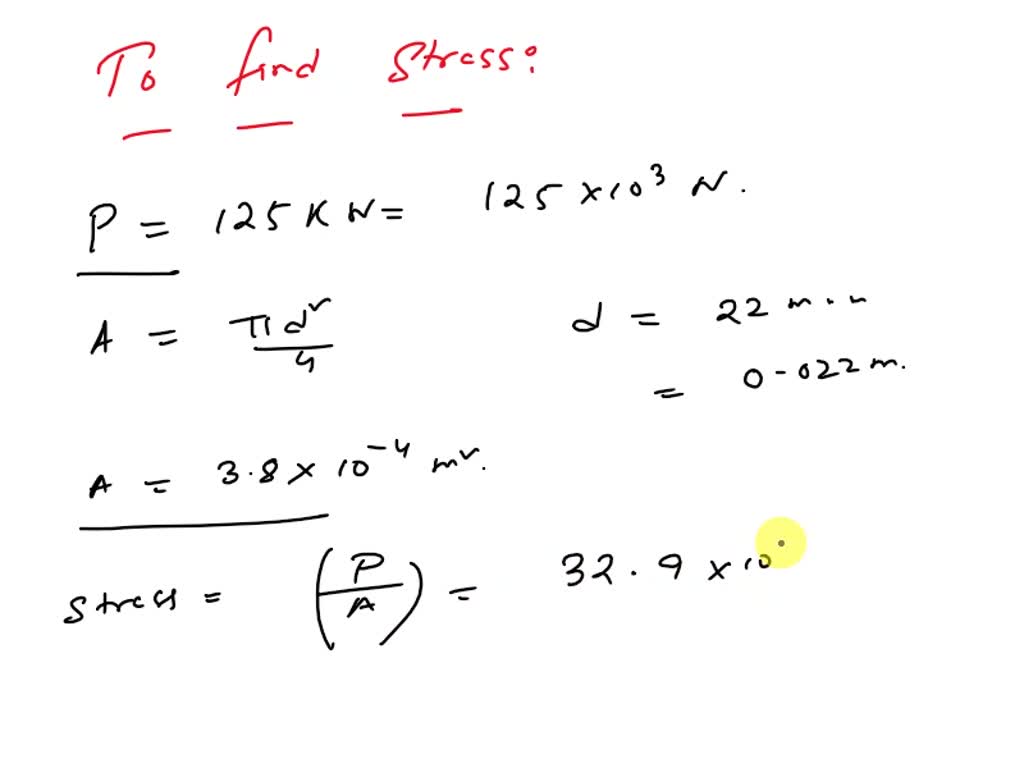 To find stress:
P = 125 KN = 125 × 10³ N.
A = πd²/4
d = 22 mm
= 0.022 m.
A = 3.8 × 10⁻⁴ m².
stress = (P/A) = 32.9 × 10